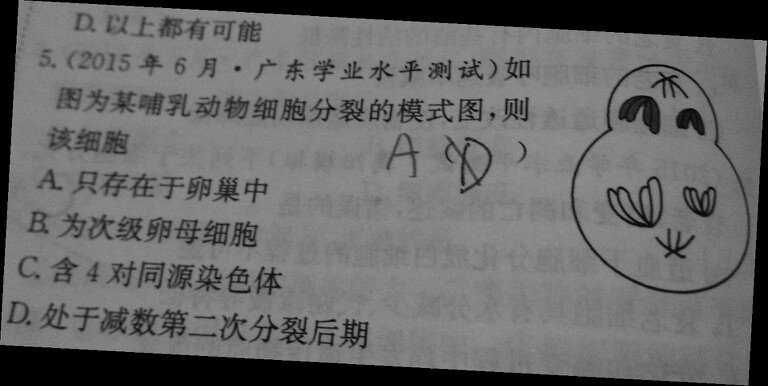 D. 以上都有可能
5. (2015 年 6 月·广东学业水平测试)如
图为某哺乳动物细胞分裂的模式图,则
该细胞 A (D)
A. 只存在于卵巢中
B. 为次级卵母细胞
C. 含 4 对同源染色体
D. 处于减数第二次分裂后期